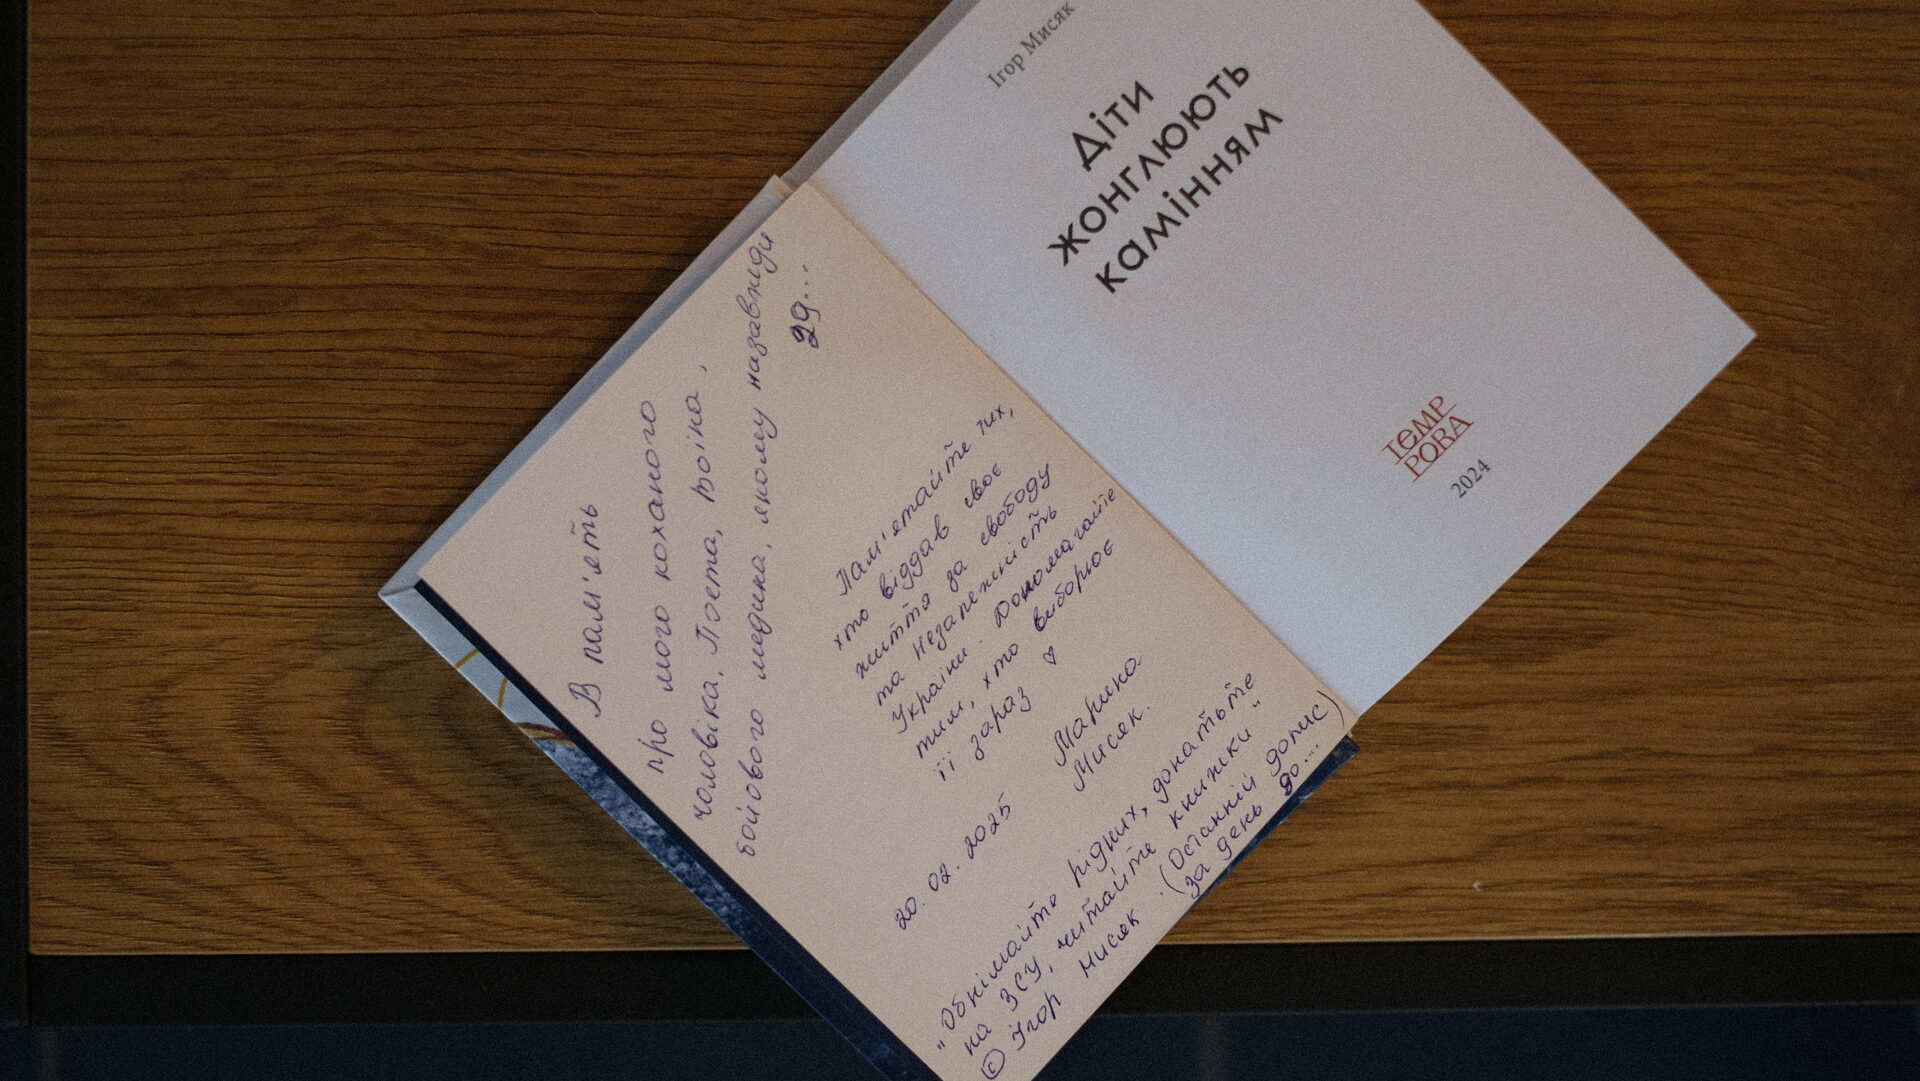 В пам'ять
про мого коханого
чоловіка, Поета, Воїна,
бойового медика, якому назавжди
29...
Пам'ятайте тих,
хто віддав своє
життя за свободу
та Незалежність
України. Допомагайте
тим, хто виборює
її зараз ♡
Марина
Мисяк.
20.02.2025
"Обнімайте рідних, донатьте
на ЗСУ, читайте книжки"
© Ігор Мисяк. (Останній допис)
за день до...
Ігор Мисяк
Діти
жонглюють
камінням
TEMP
PORA
2024